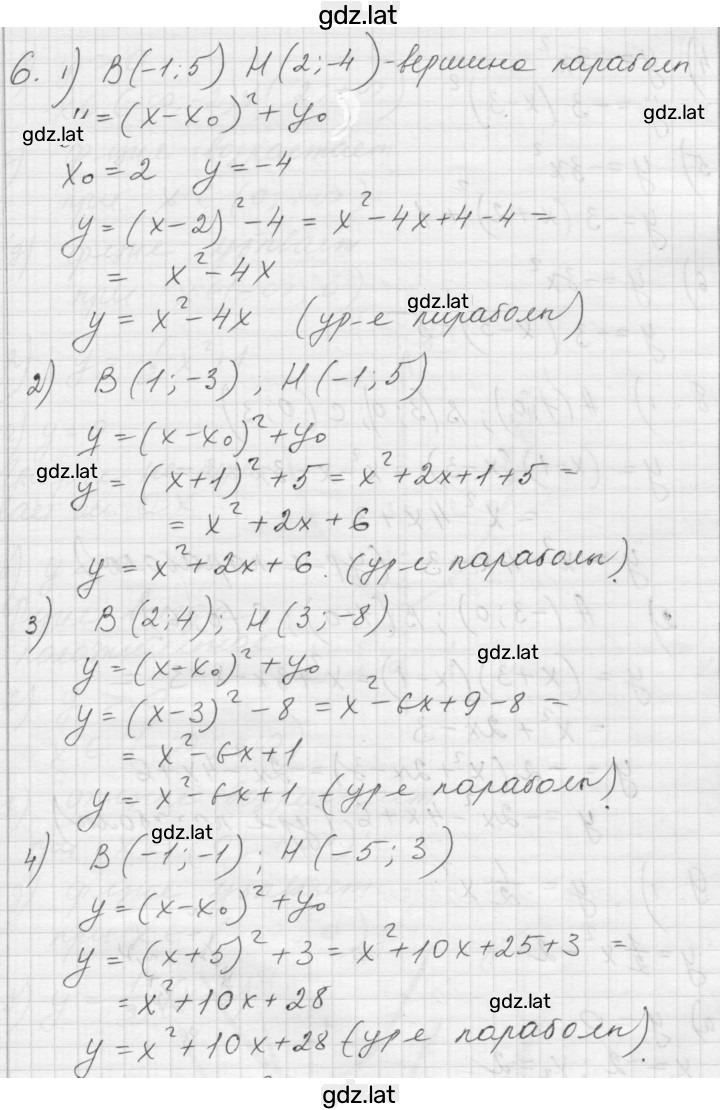 gdz.lat
6. 1) B(-1;5) H(2;-4)-вершина параболы
y=(x-x₀)²+y₀
gdz.lat
gdz.lat
x₀=2 y=-4
y=(x-2)²-4=x²-4x+4-4=
= x²-4x
gdz.lat
y=x²-4x (ур-е параболы)
2) B(1;-3); H(-1;5)
y=(x-x₀)²+y₀
gdz.lat
y=(x+1)²+5=x²+2x+1+5=
=x²+2x+6
y=x²+2x+6. (ур-е параболы).
3) B(2;4); H(3;-8)
gdz.lat
y=(x-x₀)²+y₀
y=(x-3)²-8=x²-6x+9-8=
=x²-6x+1
y=x²-6x+1 (ур-е параболы).
gdz.lat
4) B(-1;-1); H(-5;3)
y=(x-x₀)²+y₀
y=(x+5)²+3=x²+10x+25+3 =
=x²+10x+28
gdz.lat
y=x²+10x+28 (ур-е параболы).
gdz.lat